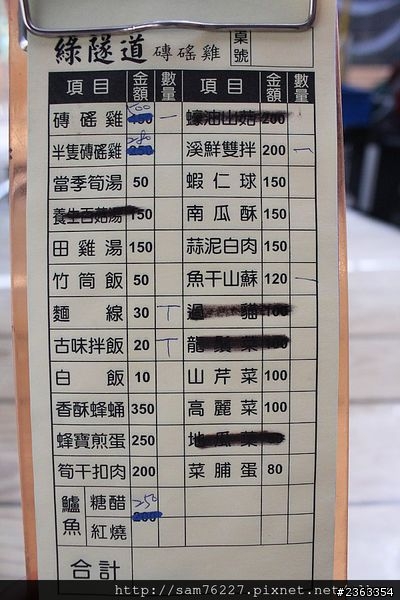 綠隧道 磚瑤雞 桌號
項目 金額 數量 項目 金額 數量
磚瑤雞 500 一 蠔油山菇 200
半隻磚瑤雞 280 溪鮮雙拌 200 一
當季筍湯 50 蝦仁球 150
養生百菇湯 150 南瓜酥 150
田雞湯 150 蒜泥白肉 150
竹筒飯 50 魚干山蘇 120 一
麵線 30 丅 過貓 100
古味拌飯 20 丅 龍鬚菜 100
白飯 10 山芹菜 100
香酥蜂蛹 350 高麗菜 100
蜂寶煎蛋 250 地瓜葉
筍干扣肉 200 菜脯蛋 80
鱸魚 糖醋 紅燒 250
合計
http://sam76227.pixnet.net
#2363354